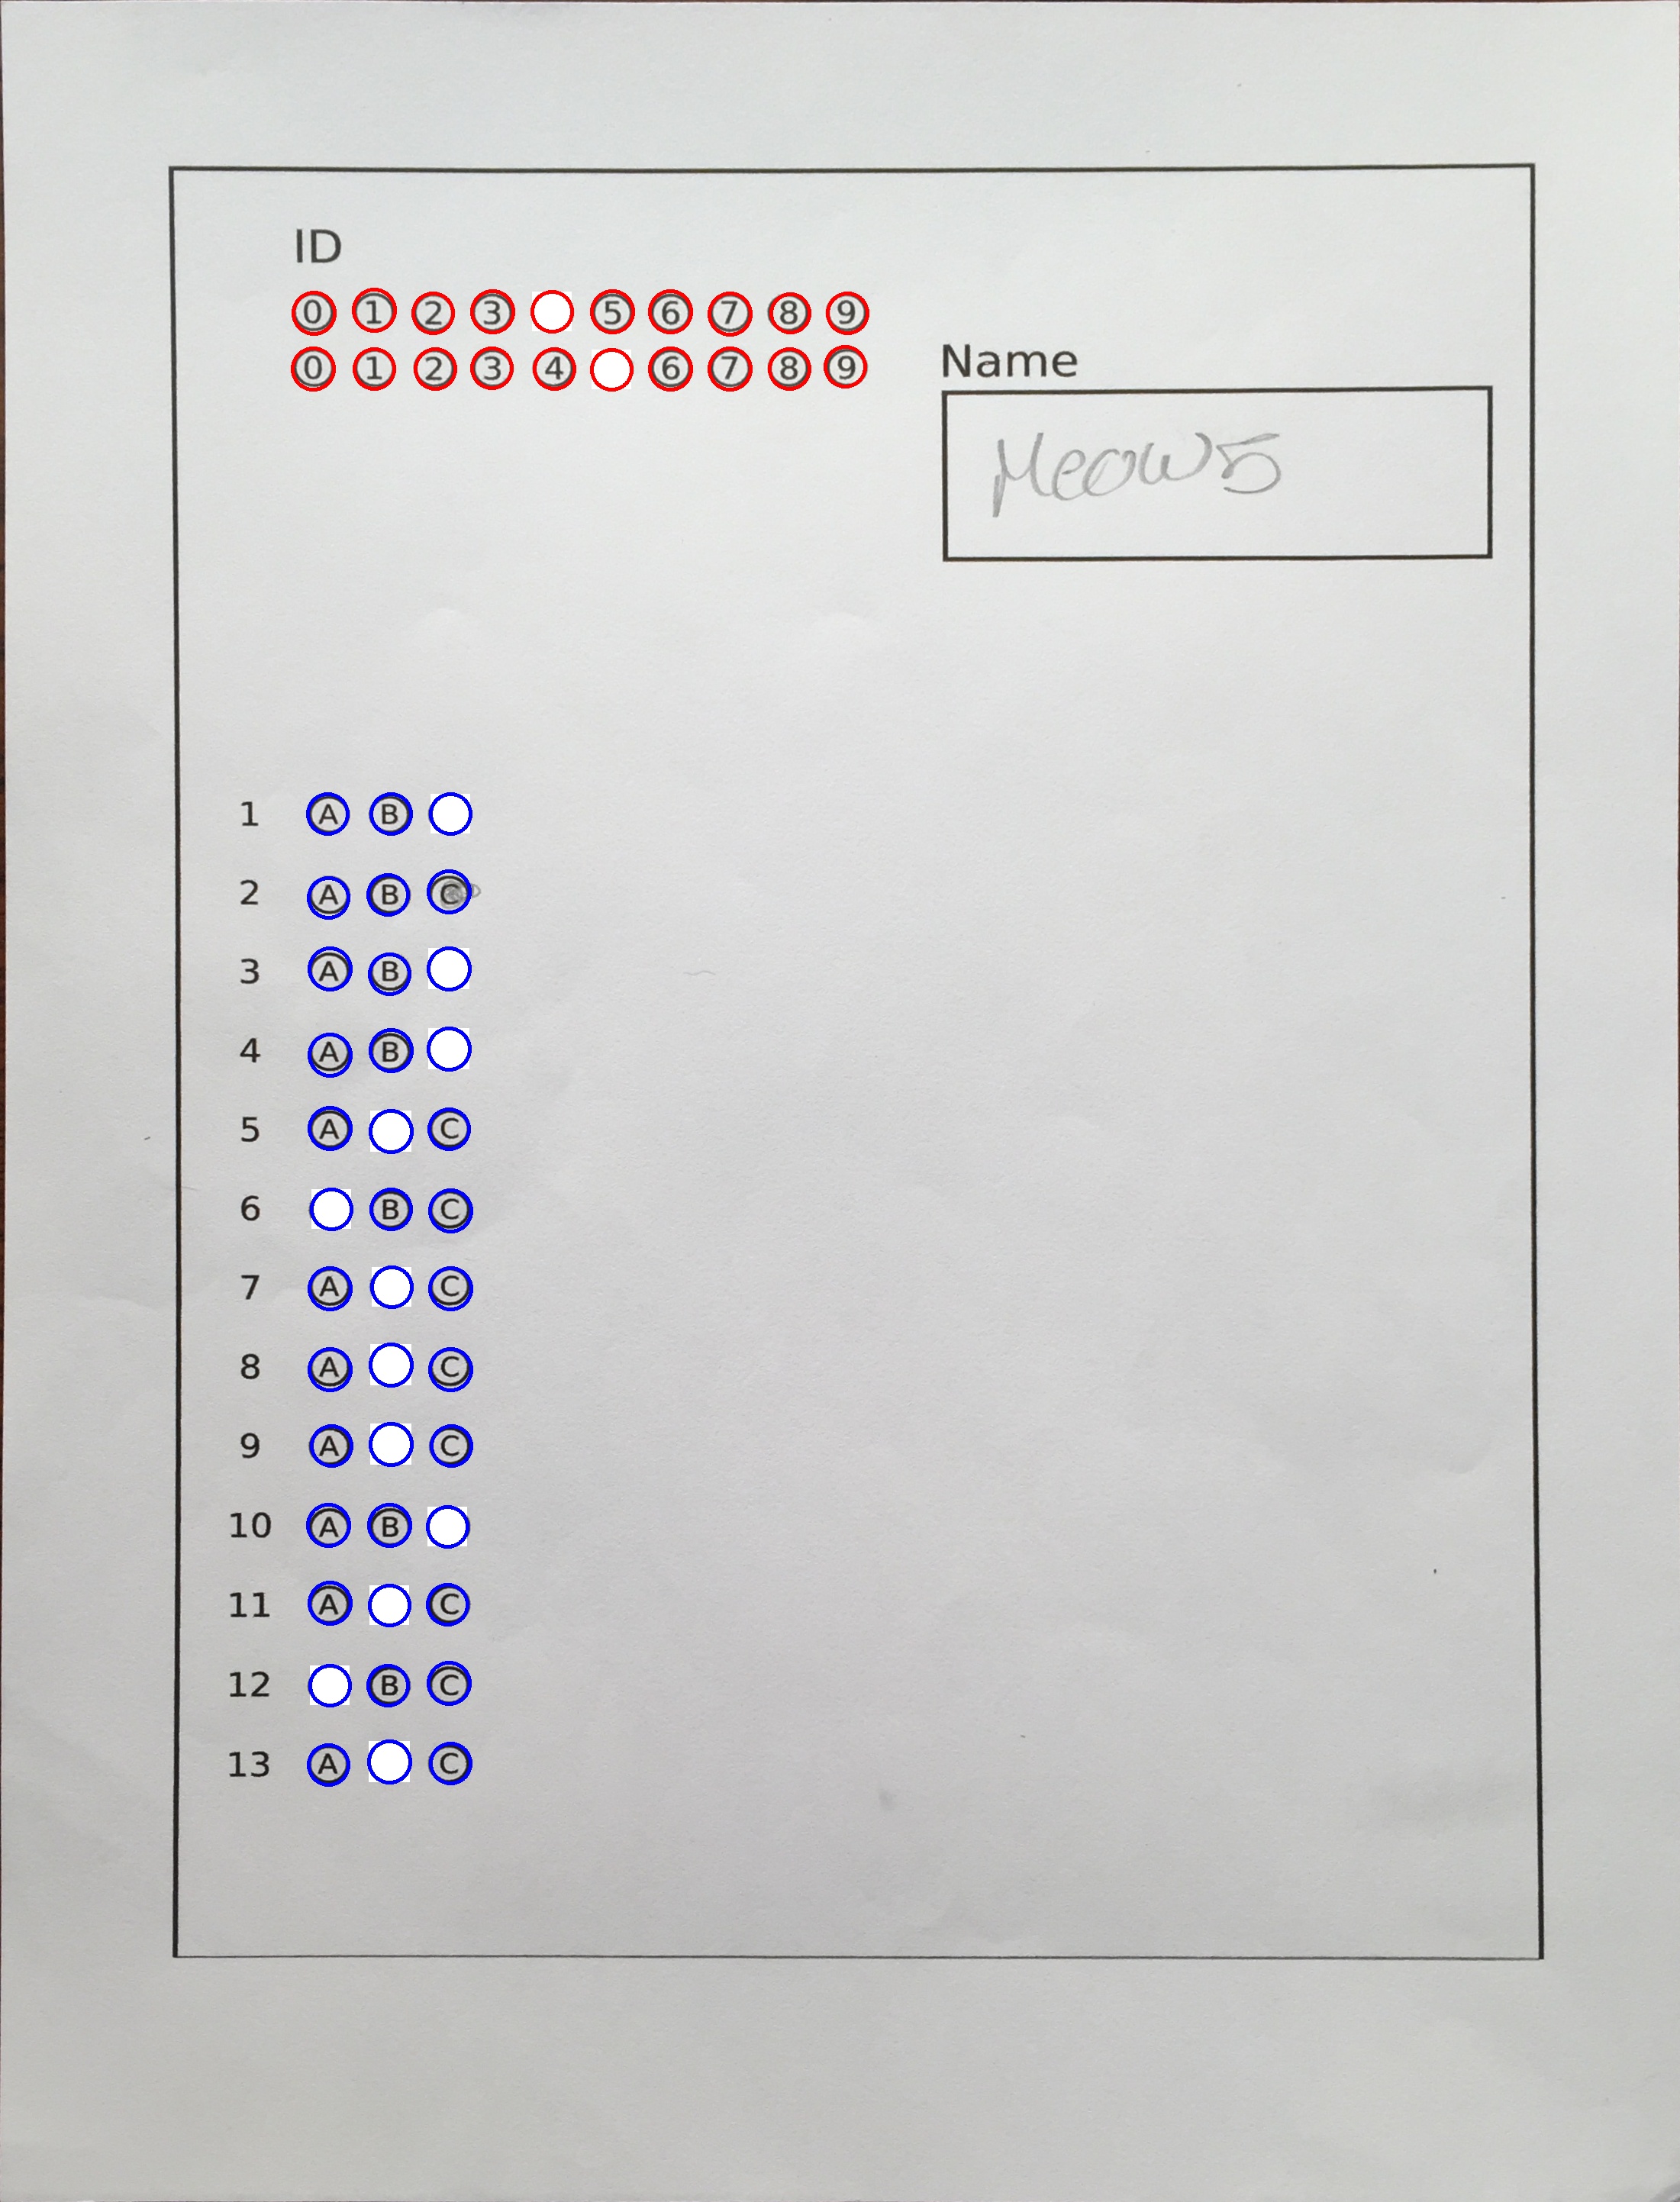 ID
0 1 2 3 5 6 7 8 9
0 1 2 3 4 6 7 8 9
Name
Meow5
1 A B
2 A B C
3 A B
4 A B
5 A C
6 B C
7 A C
8 A C
9 A C
10 A B
11 A C
12 B C
13 A C